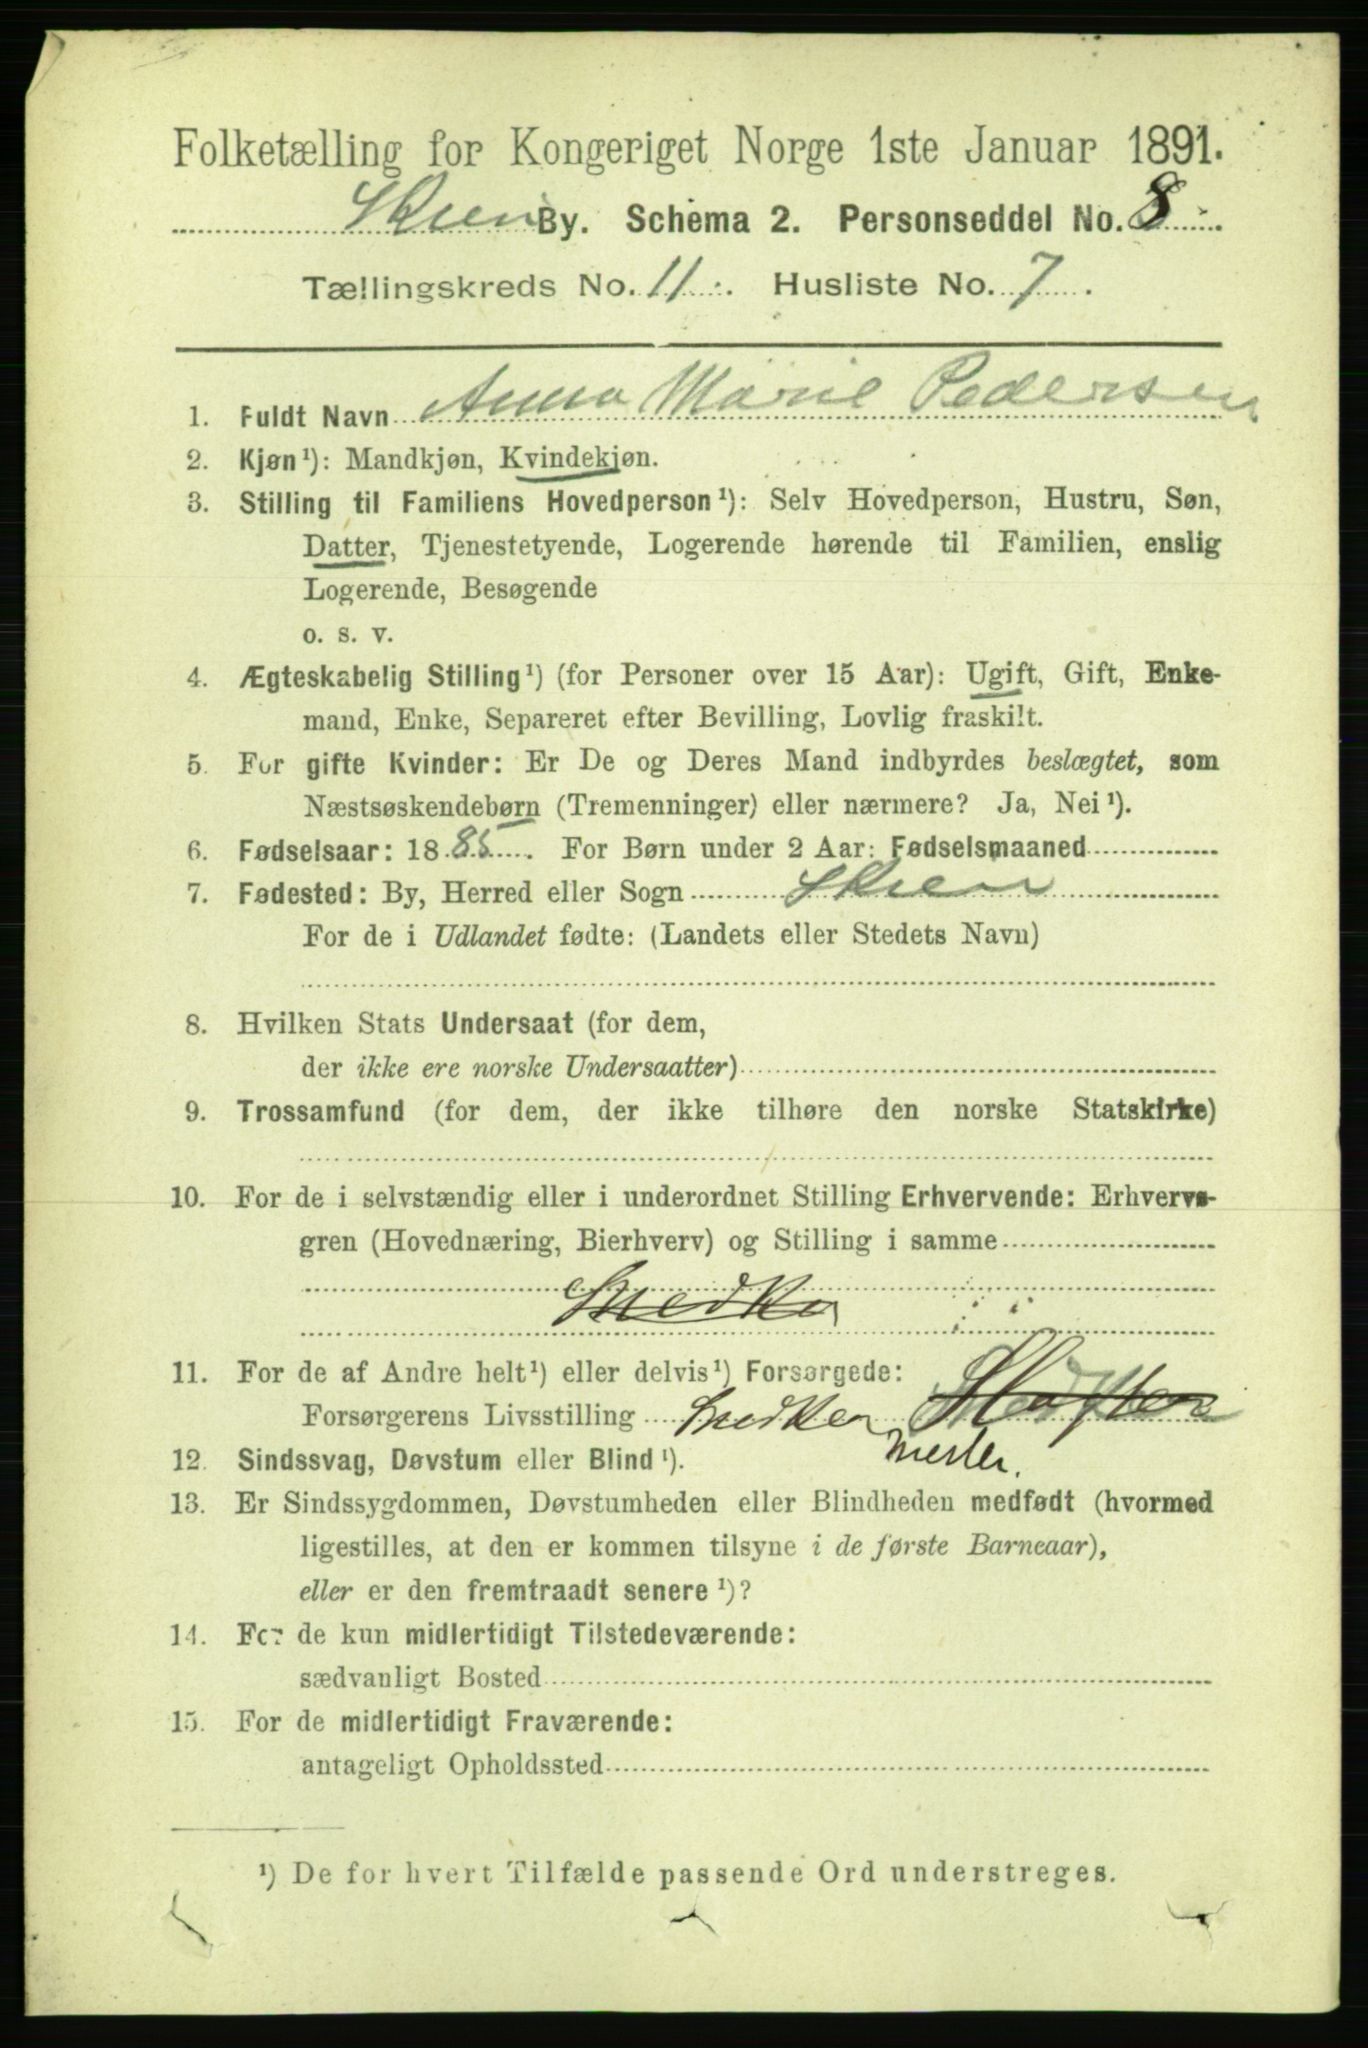 Folketælling for Kongeriget Norge 1ste Januar 1891.
Skien By. Schema 2. Personseddel No. 8.
Tællingskreds No. 11. Husliste No. 7.
1. Fuldt Navn Anna Marie Pedersen
2. Kjøn ¹): Mandkjøn, Kvindekjøn.
3. Stilling til Familiens Hovedperson ¹): Selv Hovedperson, Hustru, Søn,
Datter, Tjenestetyende, Logerende hørende til Familien, enslig
Logerende, Besøgende
o. s. v.
4. Ægteskabelig Stilling ¹) (for Personer over 15 Aar): Ugift, Gift, Enke-
mand, Enke, Separeret efter Bevilling, Lovlig fraskilt.
5. For gifte Kvinder: Er De og Deres Mand indbyrdes beslægtet, som
Næstsøskendebørn (Tremenninger) eller nærmere? Ja, Nei ¹).
6. Fødselsaar: 1885. For Børn under 2 Aar: Fødselsmaaned
7. Fødested: By, Herred eller Sogn Skien
For de i Udlandet fødte: (Landets eller Stedets Navn)
8. Hvilken Stats Undersaat (for dem,
der ikke ere norske Undersaatter)
9. Trossamfund (for dem, der ikke tilhøre den norske Statskirke)
10. For de i selvstændig eller i underordnet Stilling Erhvervende: Erhvervs-
gren (Hovednæring, Bierhverv) og Stilling i samme
Snedker
11. For de af Andre helt ¹) eller delvis ¹) Forsørgede:
Forsørgerens Livsstilling Snedker
mester.
12. Sindssvag, Døvstum eller Blind ¹).
13. Er Sindssygdommen, Døvstumheden eller Blindheden medfødt (hvormed
ligestilles, at den er kommen tilsyne i de første Barneaar),
eller er den fremtraadt senere ¹)?
14. For de kun midlertidigt Tilstedeværende:
sædvanligt Bosted
15. For de midlertidigt Fraværende:
antageligt Opholdssted
¹) De for hvert Tilfælde passende Ord understreges.